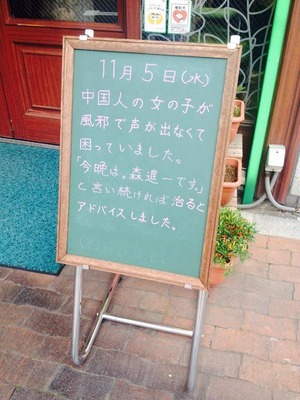 11月5日(水)
中国人の女の子が
風邪で声が出なくて
困っていました。
「今晩は。森進一です。」
と言い続ければ治ると
アドバイスしました。